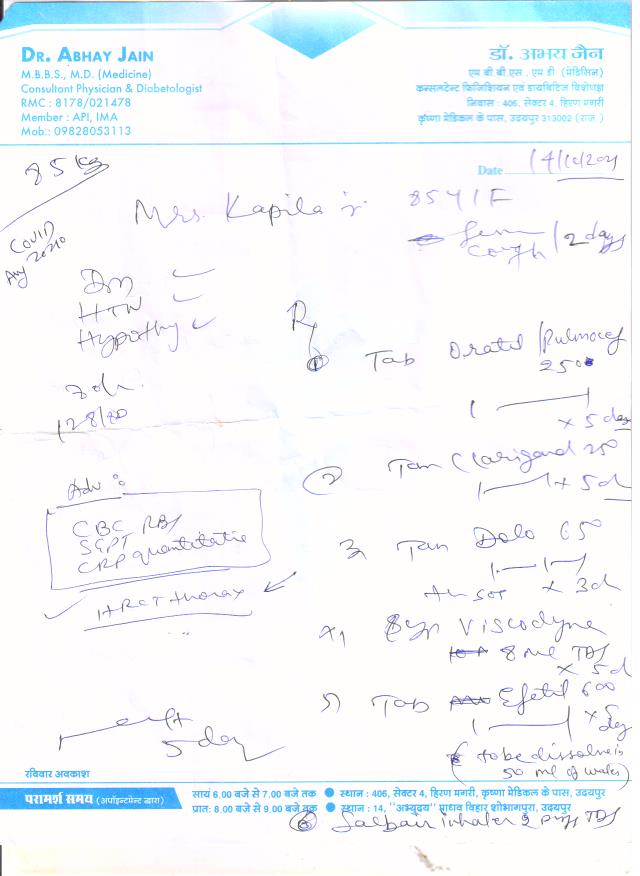 DR. ABHAY JAIN
M.B.B.S., M.D. (Medicine)
Consultant Physician & Diabetologist
RMC : 8178/021478
Member : API, IMA
Mob:: 09828053113
डॉ. अभय जैन
एम बी बी एस . एम डी (मेडिसिन)
कन्सलटेन्ट फिजिशियन एवं डायबिटिज विशेषज्ञ
निवास : 406, सेक्टर 4, हिरण मगरी
कृष्णा मेडिकल के पास, उदयपुर 313002 (राज.)
85 kg
Date
Mrs. Kapila
COVID
Aug 2020
cough / 2 days
DM
HTN
Hypothy
Rx
① Tab Oratil / Pulmocef
250
1 1
x 5 day
128/80
② Tab Clarigard 250
1 1 x 5 d
Adv :
CBC RBS
SGPT
CRP quantitative
HRCT thorax
3 Tab Dolo 650
1 1 1
x 3d
4) Syp Viscodyne
8 ml TDS
x 5d
5) Tab Efetil 600
1 1 x 5 day
(to be dissolve in
50 ml of water)
5 day
रविवार अवकाश
परामर्श समय (अपॉइन्टमेन्ट द्वारा)
सायं 6.00 बजे से 7.00 बजे तक ● स्थान : 406, सेक्टर 4, हिरण मगरी, कृष्णा मेडिकल के पास, उदयपुर
प्रात: 8.00 बजे से 9.00 बजे तक ● स्थान : 14, "अभ्युदय" माधव विहार शोभागपुरा, उदयपुर
⑥ Salbair inhaler 2 puff TDS